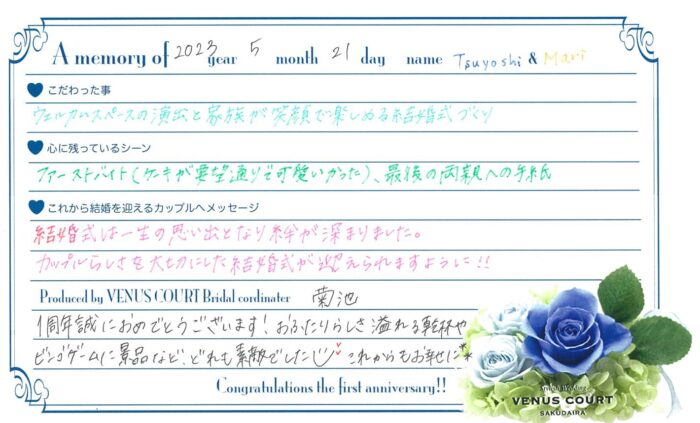 A memory of 2023 year 5 month 21 day name Tsuyoshi & Mari
こだわった事
ウェルカムスペースの演出と家族が笑顔で楽しめる結婚式づくり
心に残っているシーン
ファーストバイト(ケーキが要望通りで可愛いかった)、最後の両親への手紙
これから結婚を迎えるカップルへメッセージ
結婚式は一生の思い出となり絆が深まりました。
カップルらしさを大切にした結婚式が迎えられますように!!
Produced by VENUS COURT Bridal cordinater 菊池
1周年誠におめでとうございます!おふたりらしさ溢れる乾杯や
ビンゴゲームに景品など、どれも素敵でした これからもお幸せに
Congratulations the first anniversary!!
VENUS COURT
SAKUDAIRA